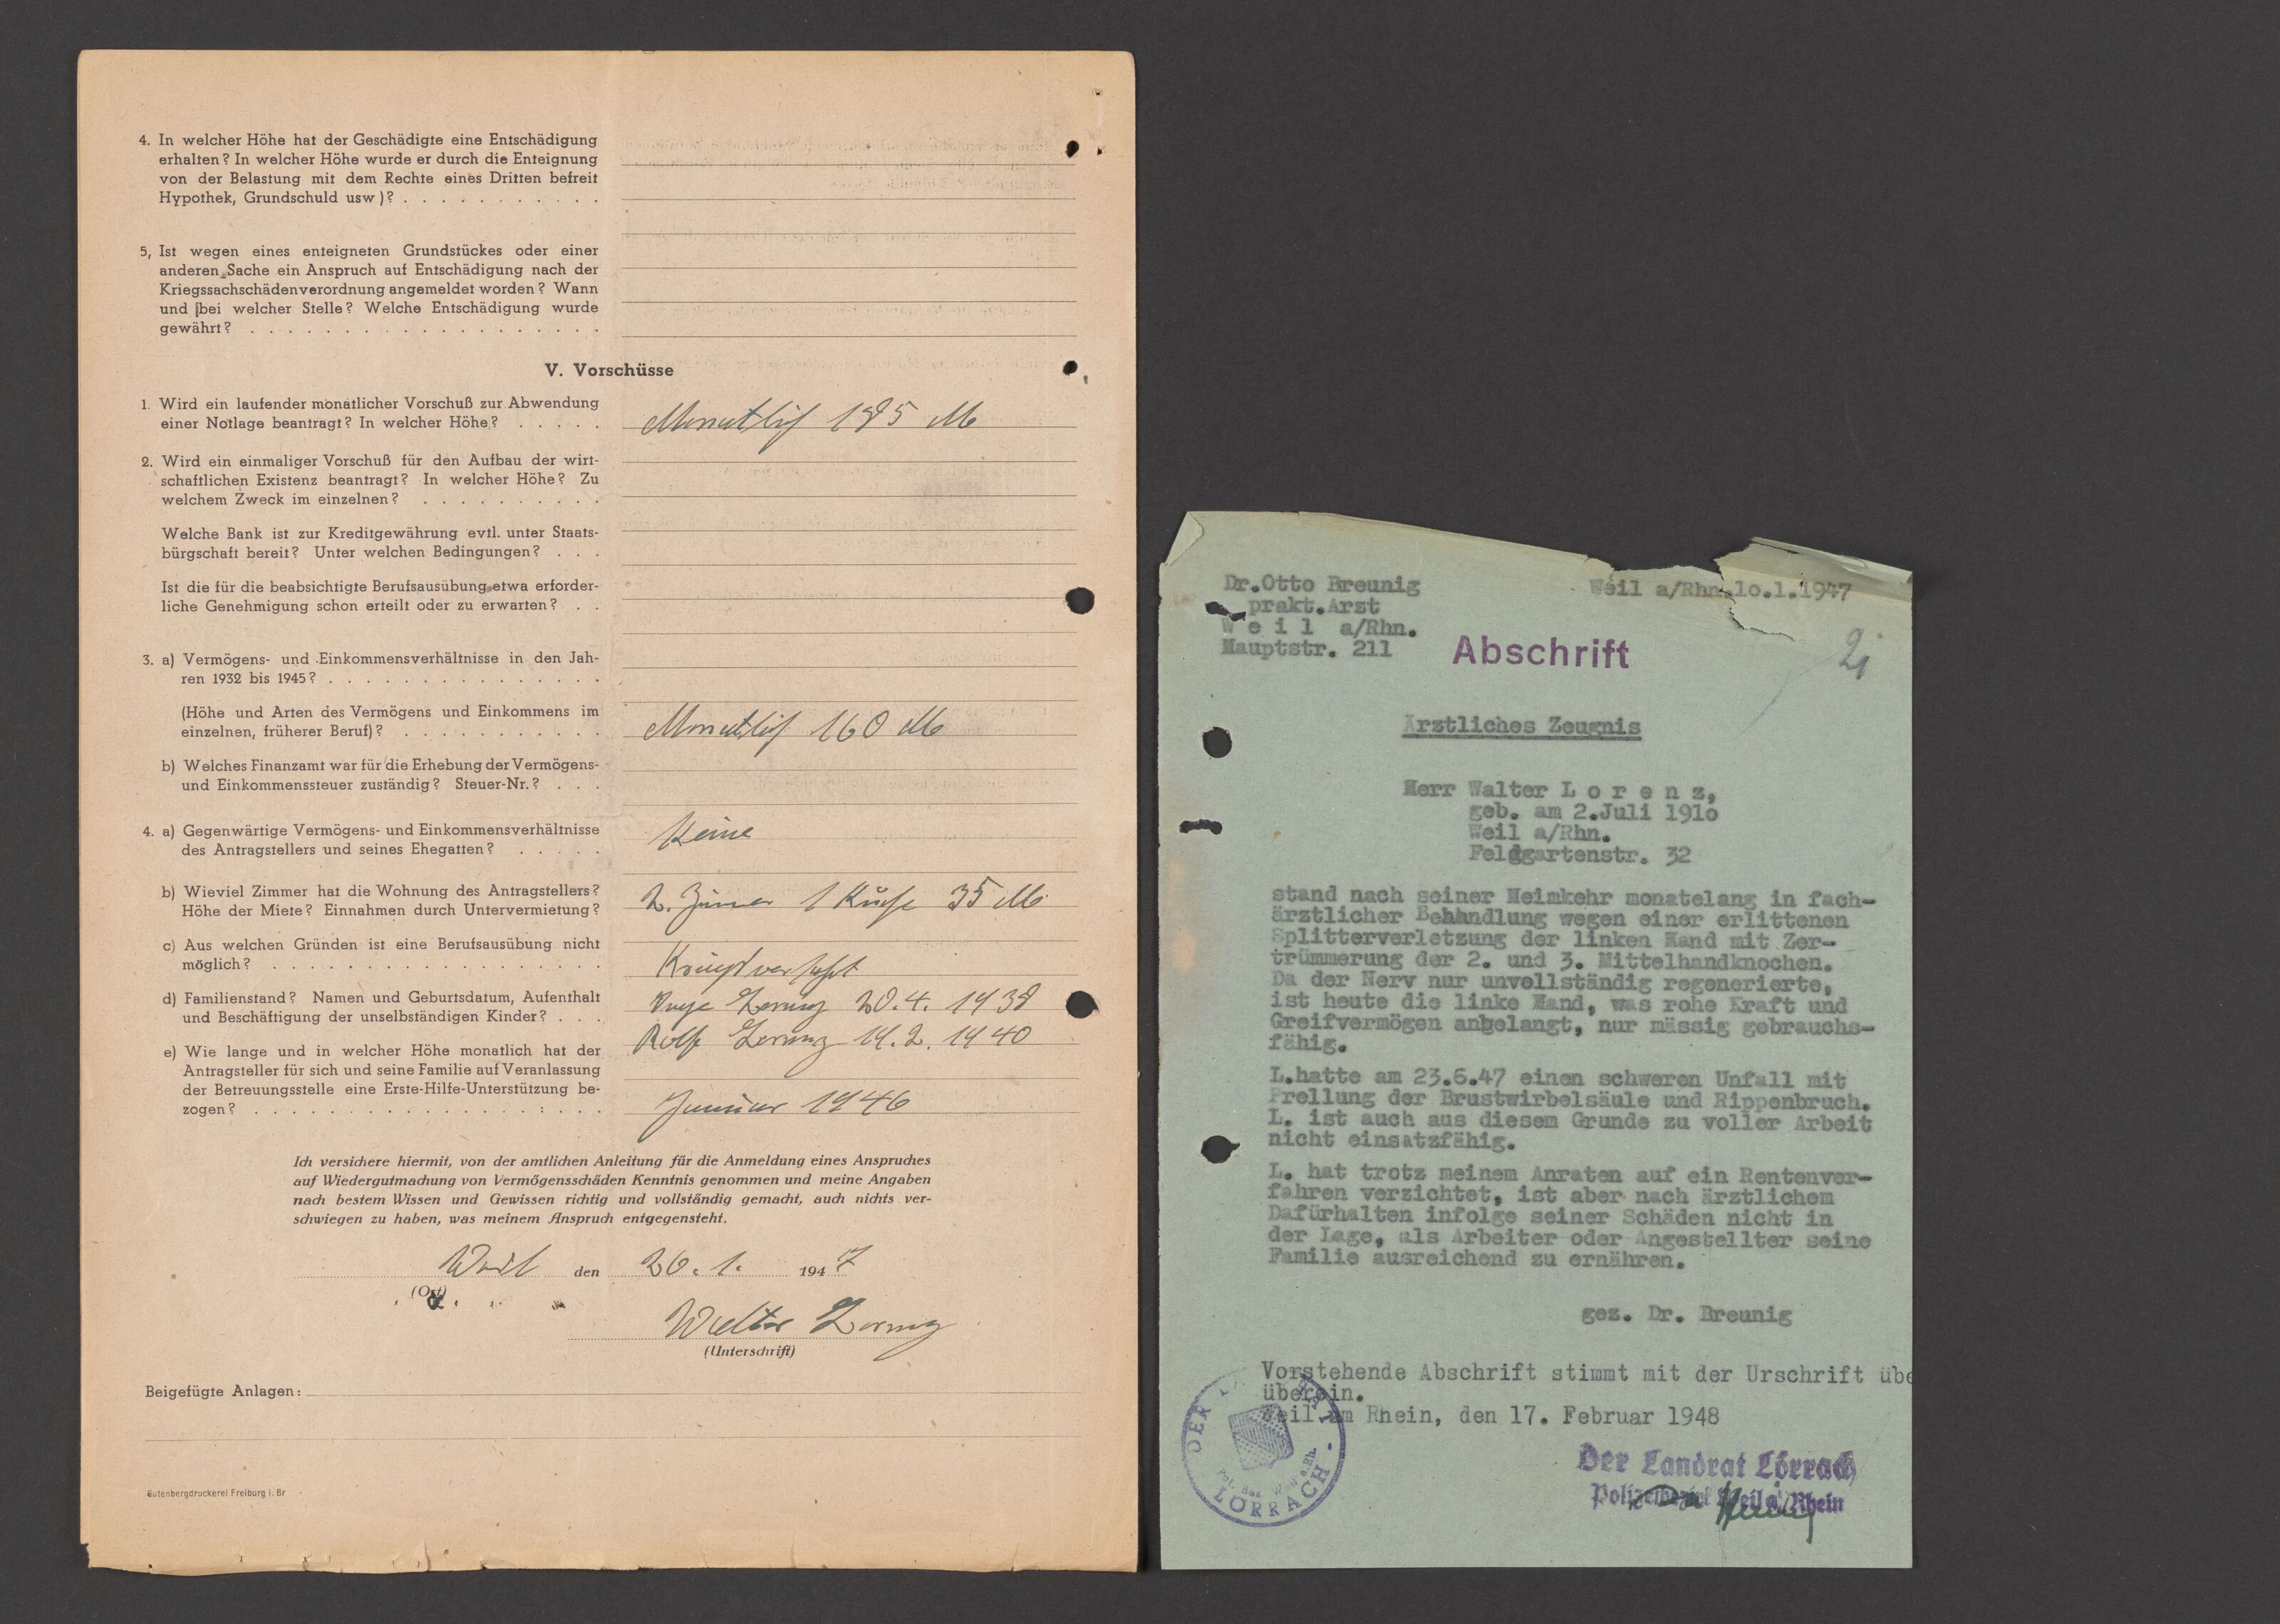 4. In welcher Höhe hat der Geschädigte eine Entschädigung
erhalten? In welcher Höhe wurde er durch die Enteignung
von der Belastung mit dem Rechte eines Dritten befreit
Hypothek, Grundschuld usw)? . . . . . . . . . . .
5, Ist wegen eines enteigneten Grundstückes oder einer
anderen Sache ein Anspruch auf Entschädigung nach der
Kriegssachschädenverordnung angemeldet worden? Wann
und bei welcher Stelle? Welche Entschädigung wurde
gewährt? . . . . . . . . . . . . . . . . . . .
V. Vorschüsse
1. Wird ein laufender monatlicher Vorschuß zur Abwendung
einer Notlage beantragt? In welcher Höhe? . . . . .
Monatlich 185 M
2. Wird ein einmaliger Vorschuß für den Aufbau der wirt-
schaftlichen Existenz beantragt? In welcher Höhe? Zu
welchem Zweck im einzelnen? . . . . . . . . . .
Welche Bank ist zur Kreditgewährung evtl. unter Staats-
bürgschaft bereit? Unter welchen Bedingungen? . . .
Ist die für die beabsichtigte Berufsausübung etwa erforder-
liche Genehmigung schon erteilt oder zu erwarten? . .
3. a) Vermögens- und Einkommensverhältnisse in den Jah-
ren 1932 bis 1945? . . . . . . . . . . . . . . .
(Höhe und Arten des Vermögens und Einkommens im
einzelnen, früherer Beruf)? . . . . . . . . . . .
Monatlich 160 M
b) Welches Finanzamt war für die Erhebung der Vermögens-
und Einkommenssteuer zuständig? Steuer-Nr.? . . .
4. a) Gegenwärtige Vermögens- und Einkommensverhältnisse
des Antragstellers und seines Ehegatten? . . . . .
Keine
b) Wieviel Zimmer hat die Wohnung des Antragstellers?
Höhe der Miete? Einnahmen durch Untervermietung?
2. Zimmer 1 Küche 35 M
c) Aus welchen Gründen ist eine Berufsausübung nicht
möglich? . . . . . . . . . . . . . . . . . .
Kriegsversehrt
d) Familienstand? Namen und Geburtsdatum, Aufenthalt
und Beschäftigung der unselbständigen Kinder? . . .
Lorenz 20.4. 1938
Rolf Lorenz 14.2. 1940
e) Wie lange und in welcher Höhe monatlich hat der
Antragsteller für sich und seine Familie auf Veranlassung
der Betreuungsstelle eine Erste-Hilfe-Unterstützung be-
zogen? . . . . . . . . . . . . . . . . . : . . .
Januar 1946
Ich versichere hiermit, von der amtlichen Anleitung für die Anmeldung eines Anspruches
auf Wiedergutmachung von Vermögensschäden Kenntnis genommen und meine Angaben
nach bestem Wissen und Gewissen richtig und vollständig gemacht, auch nichts ver-
schwiegen zu haben, was meinem Anspruch entgegensteht.
Weil den 26. 1. 1947
(Ort)
Walter Lorenz
(Unterschrift)
Beigefügte Anlagen:
Gutenbergdruckerei Freiburg i. Br
Dr.Otto Breunig Weil a/Rhn.1o.1.1947
prakt.Arzt
W e i l a/Rhn.
Hauptstr. 211
Abschrift
2
Ärztliches Zeugnis
Herr Walter L o r e n z,
geb. am 2.Juli 191o
Weil a/Rhn.
Feldgartenstr. 32
stand nach seiner Heimkehr monatelang in fach-
ärztlicher Behandlung wegen einer erlittenen
Splitterverletzung der linken Hand mit Zer-
trümmerung der 2. und 3. Mittelhandknochen.
Da der Nerv nur unvollständig regenerierte,
ist heute die linke Hand, was rohe Kraft und
Greifvermögen anbelangt, nur mässig gebrauchs-
fähig.
L.hatte am 23.6.47 einen schweren Unfall mit
Prellung der Brustwirbelsäule und Rippenbruch.
L. ist auch aus diesem Grunde zu voller Arbeit
nicht einsatzfähig.
L. hat trotz meinem Anraten auf ein Rentenver-
fahren verzichtet, ist aber nach ärztlichem
Dafürhalten infolge seiner Schäden nicht in
der Lage, als Arbeiter oder Angestellter seine
Familie ausreichend zu ernähren.
gez. Dr. Breunig
Vorstehende Abschrift stimmt mit der Urschrift übe
überein.
Weil am Rhein, den 17. Februar 1948
DER LANDRAT
LÖRRACH
Pol. Bez. Weil a. Rh.
Der Landrat Lörrach
Polizeibezirk Weil a/Rhein